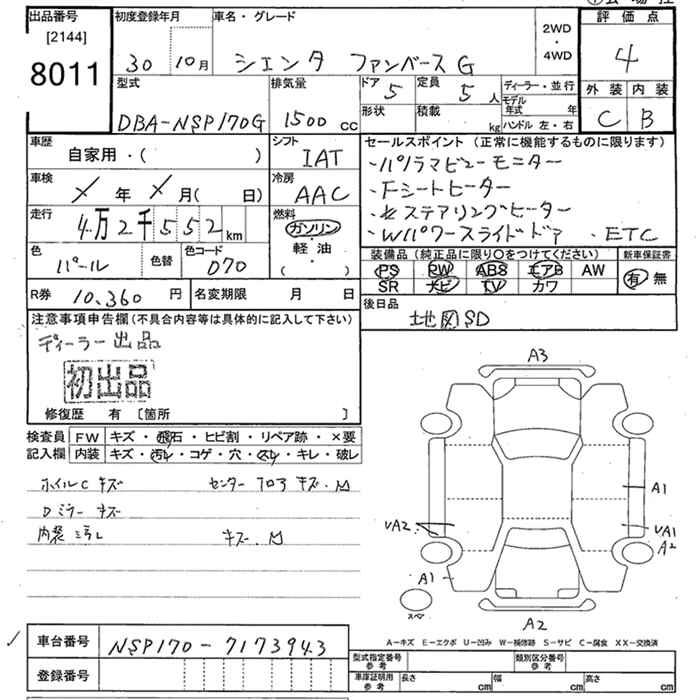 出品番号 初度登録年月 車名・グレード 評価点
[2144] 2WD
8011 30 10月 シエンタ ファンベースG ・ 4
4WD
型式 排気量 ドア 定員 ディーラー・並行 外装 内装
DBA-NSP170G 1500cc 5 5人 モデル年式 年 C B
形状 積載 kg ハンドル 左・右
車歴 シフト セールスポイント(正常に機能するものに限ります)
自家用・( ) IAT ・パノラマビューモニター
車検 冷房 ・Fシートヒーター
X年X月( 日) AAC ・ステアリングヒーター
走行 燃料 ・Wパワースライドドア ・ETC
4万2千552km ガソリン・軽油・( )
色 色替 色コード 装備品(純正品に限り○をつけてください) 新車保証書
パール 070 PS PW ABS エアB AW 有・無
SR ナビ TV カワ
R券 10,360円 名変期限 月 日 後日品
地図SD
注意事項申告欄(不具合内容等は具体的に記入して下さい)
ディーラー出品
初出品
修復歴 有 [箇所 ]
A3
検査員 FW キズ・飛石・ヒビ割・リペア跡・×要
記入欄 内装 キズ・汚レ・コゲ・穴・スレ・キレ・破レ
ホイルC キズ センターフロア キズ.M
A1
Dミラー キズ
内装 汚レ キズ.M
VA2 VA1
A2
A1
スペア
A2
A-キズ E-エクボ U-凹み W-補修跡 S-サビ C-腐食 XX-交換済
車台番号 NSP170-7173943
型式指定番号 参考 類別区分番号 参考
登録番号 車庫証明用 参考 長さ cm 幅 cm 高さ cm